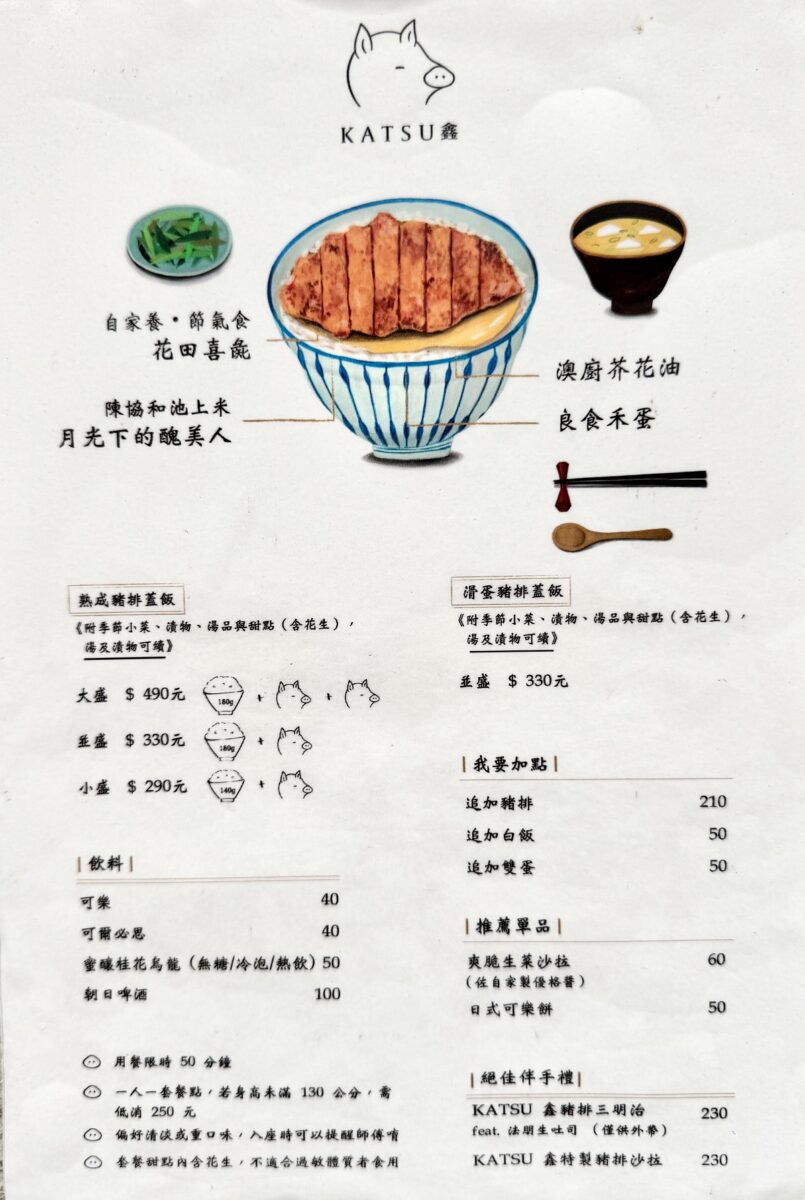 KATSU鑫
自家養・節氣食
花田喜彘
陳協和池上米
月光下的醜美人
澳廚芥花油
良食禾蛋
熟成豬排蓋飯
《附季節小菜、漬物、湯品與甜點（含花生），
湯及漬物可續》
大盛 $ 490元 180g + +
並盛 $ 330元 180g +
小盛 $ 290元 140g +
滑蛋豬排蓋飯
《附季節小菜、漬物、湯品與甜點（含花生），
湯及漬物可續》
並盛 $ 330元
|飲料|
可樂 40
可爾必思 40
蜜釀桂花烏龍（無糖/冷泡/熱飲）50
朝日啤酒 100
|我要加點|
追加豬排 210
追加白飯 50
追加雙蛋 50
|推薦單品|
爽脆生菜沙拉 60
（佐自家製優格醬）
日式可樂餅 50
|絕佳伴手禮|
KATSU 鑫豬排三明治 230
feat. 法朋生吐司 （僅供外帶）
KATSU 鑫特製豬排沙拉 230
用餐限時 50 分鐘
一人一套餐點，若身高未滿 130 公分，需
低消 250 元
偏好清淡或重口味，入座時可以提醒師傅唷
套餐甜點內含花生，不適合過敏體質者食用